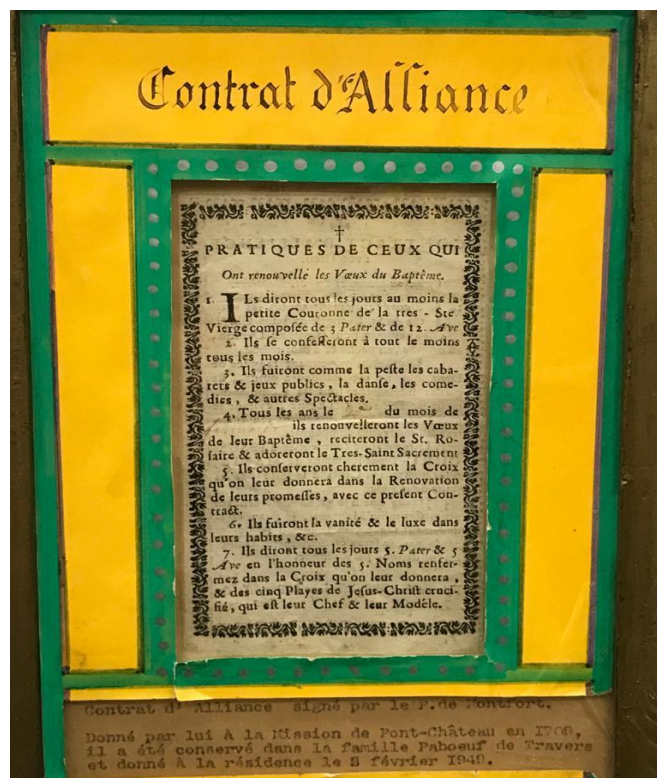 Contrat d'Alliance
†
PRATIQUES DE CEUX QUI
Ont renouvellé les Vœux du Baptême.
1. ILs diront tous les jours au moins la
petite Couronne de la tres - Ste
Vierge composée de 3 Pater & de 12 Ave
2. Ils se confesseront à tout le moins
tous les mois.
3. Ils fuiront comme la peste les caba-
rets & jeux publics, la danse, les come-
dies, & autres Spectacles.
4. Tous les ans le du mois de
ils renouvelleront les Vœux
de leur Baptême, reciteront le St. Ro-
saire & adoreront le Tres-Saint Sacrement
5. Ils conserveront cherement la Croix
qu'on leur donnera dans la Renovation
de leurs promesses, avec ce present Con-
tract.
6. Ils fuiront la vanité & le luxe dans
leurs habits, &c.
7. Ils diront tous les jours 5. Pater & 5
Ave en l'honneur des 5. Noms renfer-
mez dans la Croix qu'on leur donnera,
& des cinq Playes de Jesus-Christ cruci-
fié, qui est leur Chef & leur Modéle.
Contrat d' Alliance signé par le P.de Montfort.
Donné par lui à la Mission de Pont-Château en 1709,
il a été conservé dans la famille Paboeuf de Travers
et donné à la résidence le 8 février 1949.